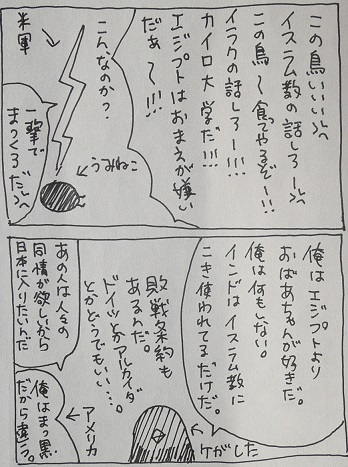 この鳥いいい
イスラム教の話しろー
この鳥〜食ってやるぞー!!
イラクの話しろー!!!!
カイロ大学だ!!!
エジプトはおまえが嫌い
だぁ〜!!!
こんなのか?
米軍
一撃で
まっくろだ
うみねこ
俺はエジプトより
おばあちゃんが好きだ。
俺は何もしない。
インドはイスラム教に
こき使われてるだけだ。
敗戦条約も
あるんだ。
ドイツとかアルカイダ
とかどうでもいい…。
ケがした
あの人は人々の
同情が欲しいから
日本に入りたいんだ
アメリカ
俺はまっ黒
だから違う。